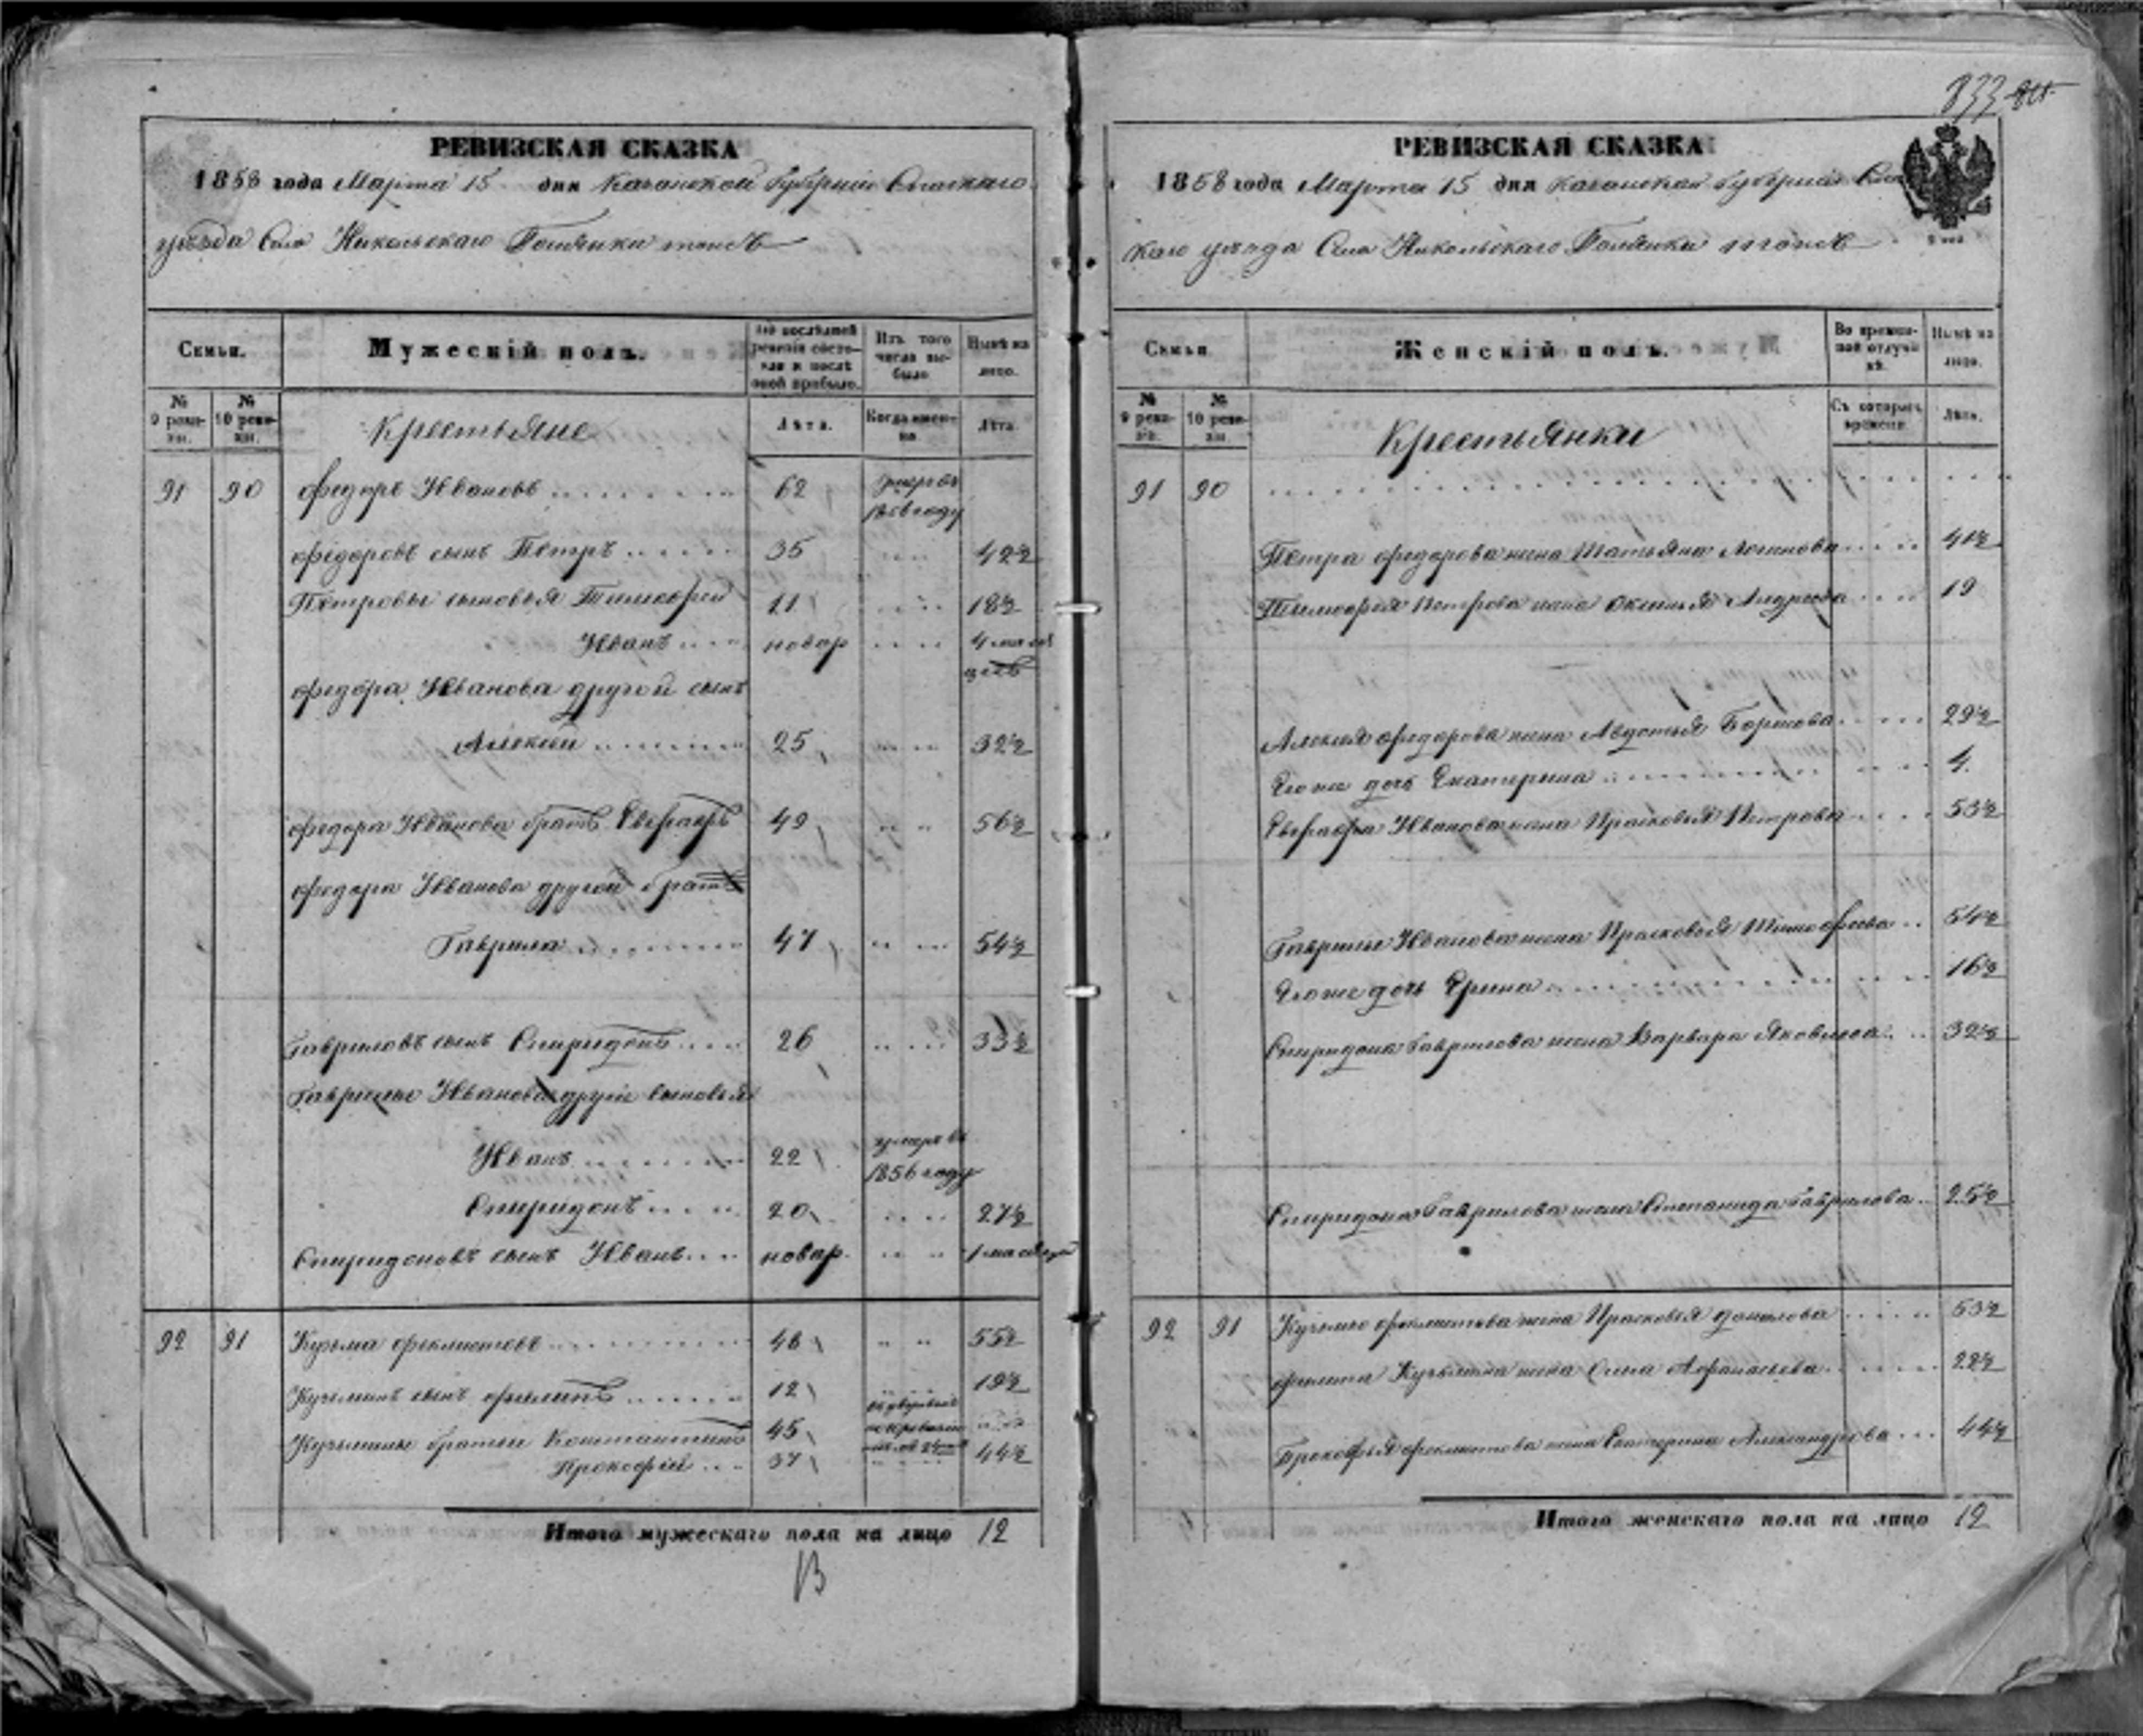 833
РЕВИЗСКАЯ СКАЗКА
1858 года Марта 15 дня Казанской Губерніи Спаскаго
уѣзда Села Никольскаго Полянки тожъ
Семьи.
Мужескій полъ.
По послѣдней ревизіи состояло и послѣ оной прибыло.
Изъ того числа выбыло
Нынѣ на лицо.
№ 9 ревизіи.
№ 10 ревизіи.
Крестьяне
Лѣта.
Когда именно
Лѣта.
91 90 Федоръ Ивановъ 62 умеръ въ 1856 году
Федоровъ сынъ Петръ 35 42½
Петровы сыновья Тимофей 11 18½
Иванъ новор 4 месецъ
Федора Иванова другой сынъ
Алексей 25 32½
Федора Иванова братъ Евграфъ 49 56½
Федора Иванова другой братъ
Гаврила 47 54½
Гавриловъ сынъ Спиридонъ 26 33½
Гаврилы Иванова другіе сыновья
Иванъ 22 умеръ въ 1856 году
Спиридонъ 20 27½
Спиридоновъ сынъ Иванъ новор. 1 месецъ
92 91 Кузьма Феклистовъ 48 55½
Кузьминъ сынъ Филипъ 12 19½
Кузьмины братьи Константинъ 45
Прокофій 37 44½
Итого мужескаго пола на лицо 12
13
РЕВИЗСКАЯ СКАЗКА
1858 года Марта 15 дня Казанской Губерніи Спас
каго уѣзда Села Никольскаго Полянки тожъ
Семьи
Женскій полъ.
Во временной отлучкѣ.
Нынѣ на лицо.
№ 9 ревизіи.
№ 10 ревизіи.
Крестьянки
Съ котораго времени.
Лѣта.
91 90
Петра Федорова жена Татьяна Логинова 41½
Тимофея Петрова жена Оксинья Андреева 19
Алексея Федорова жена Авдотья Борисова 29½
Его же дочь Екатерина 4
Евграфа Иванова жена Прасковья Петрова 53½
Гаврилы Иванова жена Прасковья Тимофеева 54½
Его же дочь Ирина 16½
Спиридона Гаврилова жена Варвара Яковлева 32½
Спиридона Гаврилова жена Степанида Гаврилова 25½
92 91 Кузьмы Феклистова жена Прасковья Данилова 53½
Филипа Кузьмина жена Афанасьева 22½
Прокофья Феклистова жена Екатерина Александрова 44½
Итого женскаго пола на лицо 12